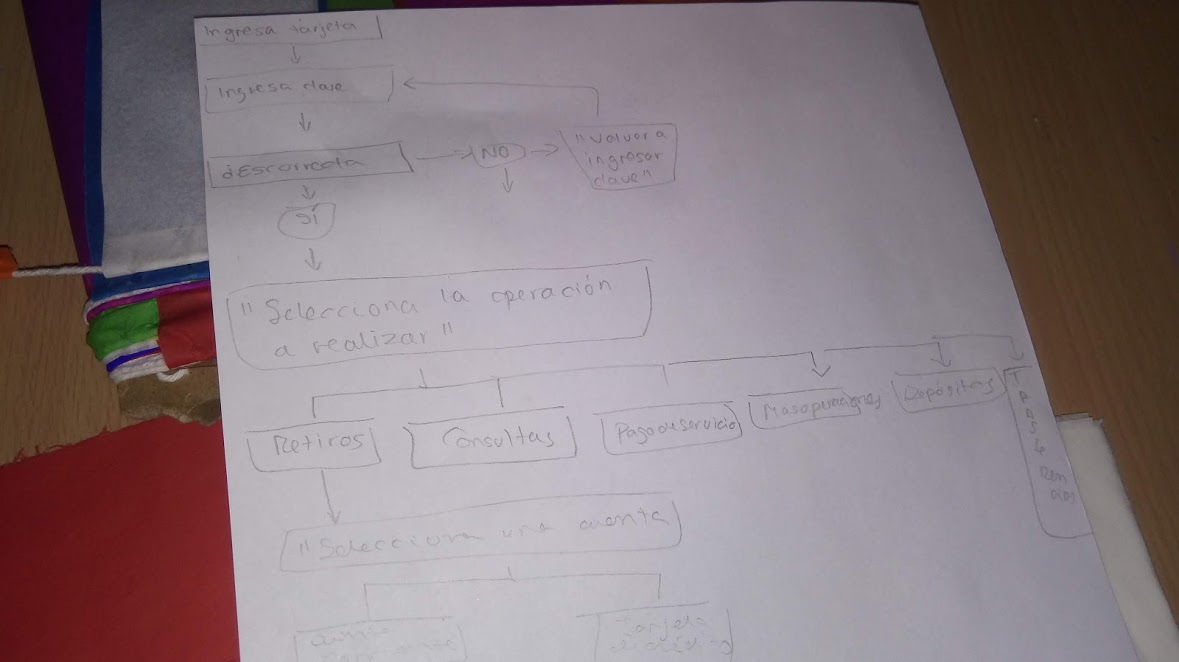 Ingresa tarjeta
Ingresa clave
¿Es correcta
NO
"volver a
ingresar
clave"
SÍ
"Selecciona la operación
a realizar"
Retiros
Consultas
Pago de servicio
Mas operaciones
Depósitos
"Selecciona una cuenta
tarjeta